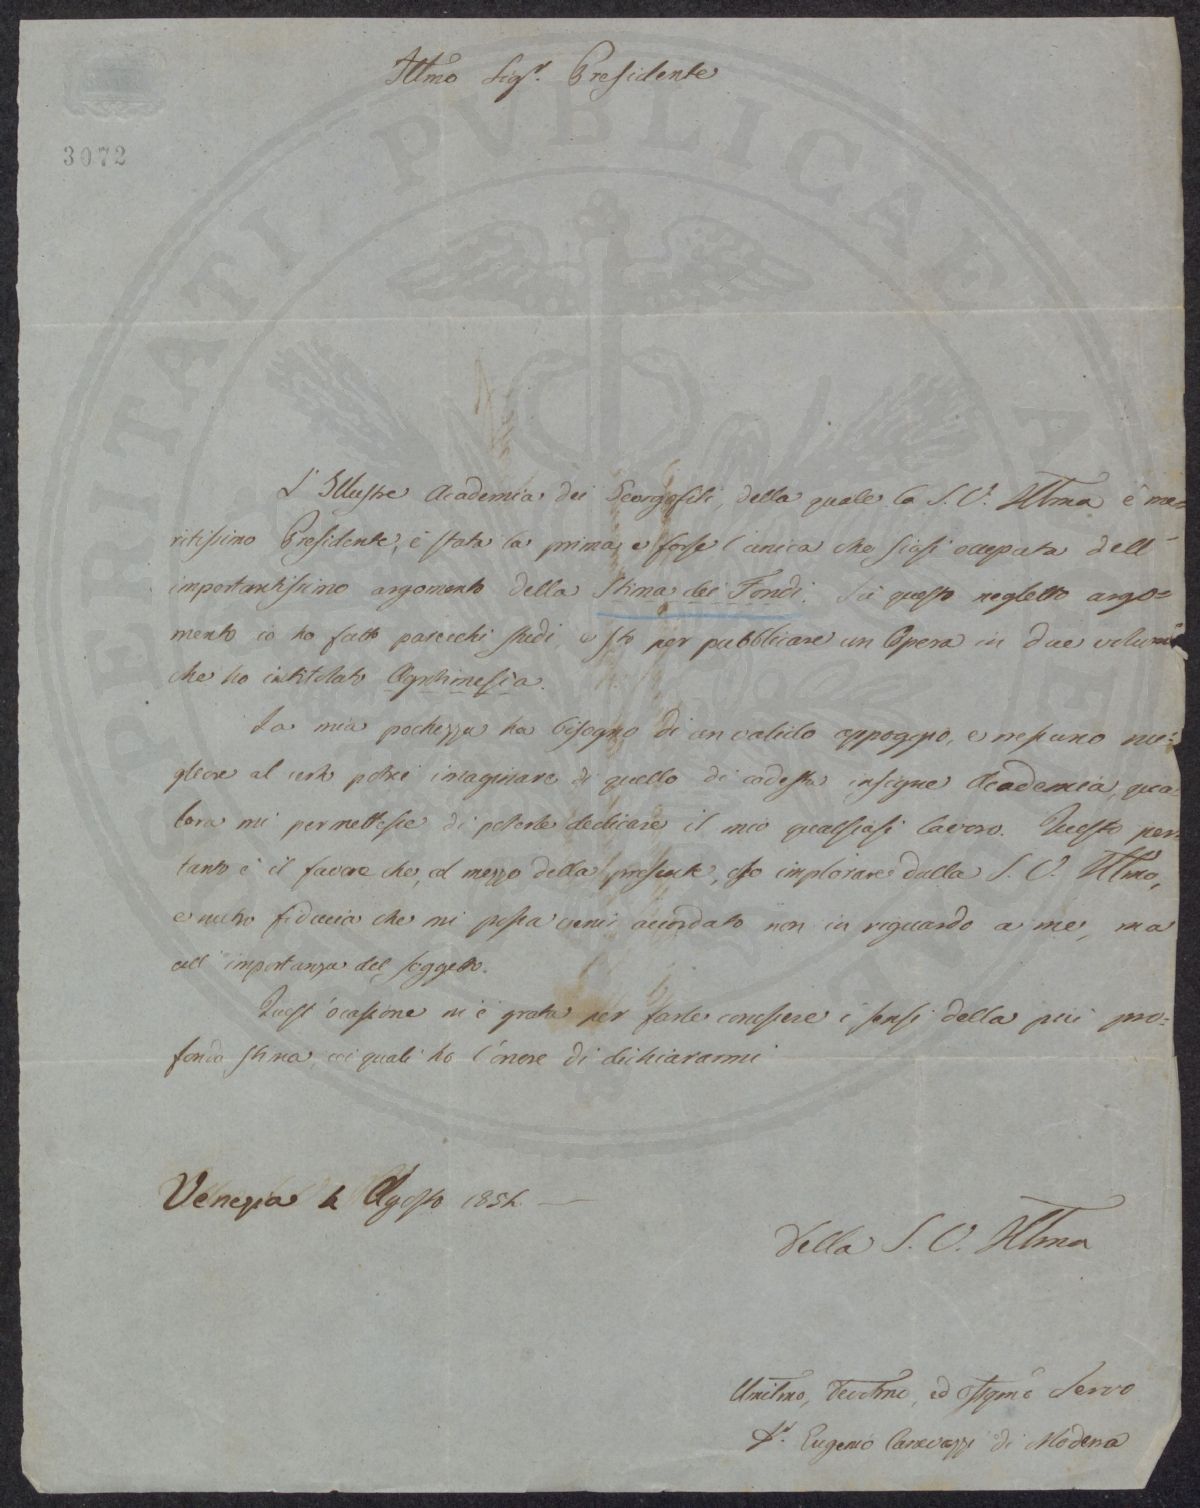 Illmo Sigr. Presidente
3072
L'Illustre Academia dei Georgofili, della quale la S. V. Illma è me=
ritissimo Presidente, è stata la prima, e forse l'unica che siasi occupata dell'
importantissimo argomento della Stima dei Fondi. Su questo negletto argo=
mento io ho fatto parecchi studi, e sto per pubblicare un Opera in due volumi
che ho intitolato Agrstimesia.
La mia pochezza ha bisogno di un valido appoggio, e nessuno mi=
gliore al certo potrei imaginare di quello di codesta insigne Academia, qua=
lora mi permettesse di poterle dedicare il mio qualsiasi lavoro. Questo per=
tanto è il favore che, col mezzo della presente, oso implorare dalla S. V. Illma,
e nutro fiducia che mi possa venir accordato non in riguardo a me, ma
all'importanza del soggetto.
Quest'ocasione mi è grata per farle conoscere i sensi della più pro=
fonda stima, coi quali ho l'onore di dichiararmi
Venezia 4 Agosto 1854.
Della S. V. Illma
Umilmo, Devotmo, ed Servo
Dr. Eugenio Canevazzi di Modena
PROSPERITATI PUBLICAE AUGENDAE